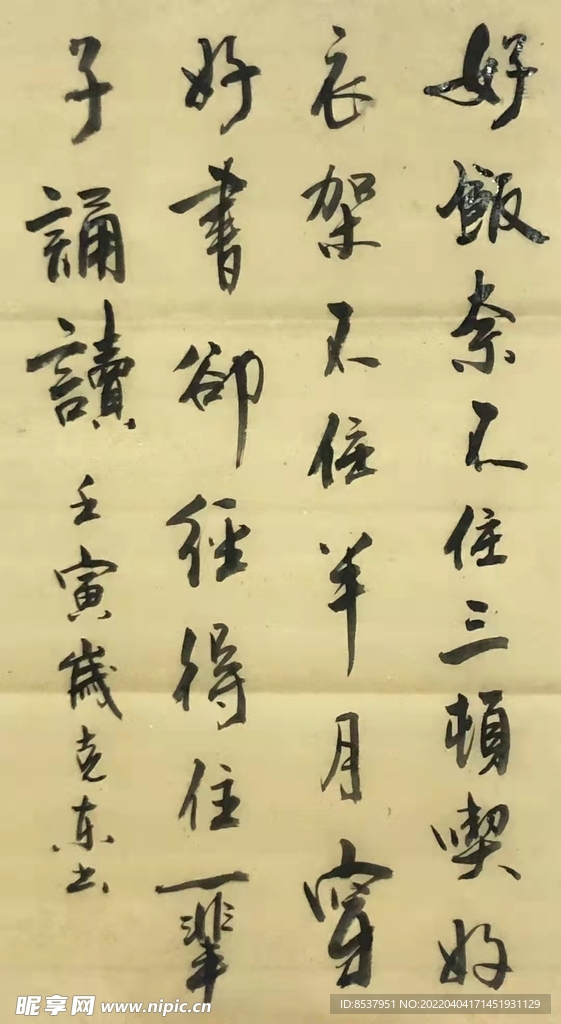 好飯奈不住三頓喫好
衣架不住羊月穿
好書卻經得住一輩
子誦讀
壬寅歲克东书
昵享网 www.nipic.cn
ID:8537951 NO:20220404171451931129